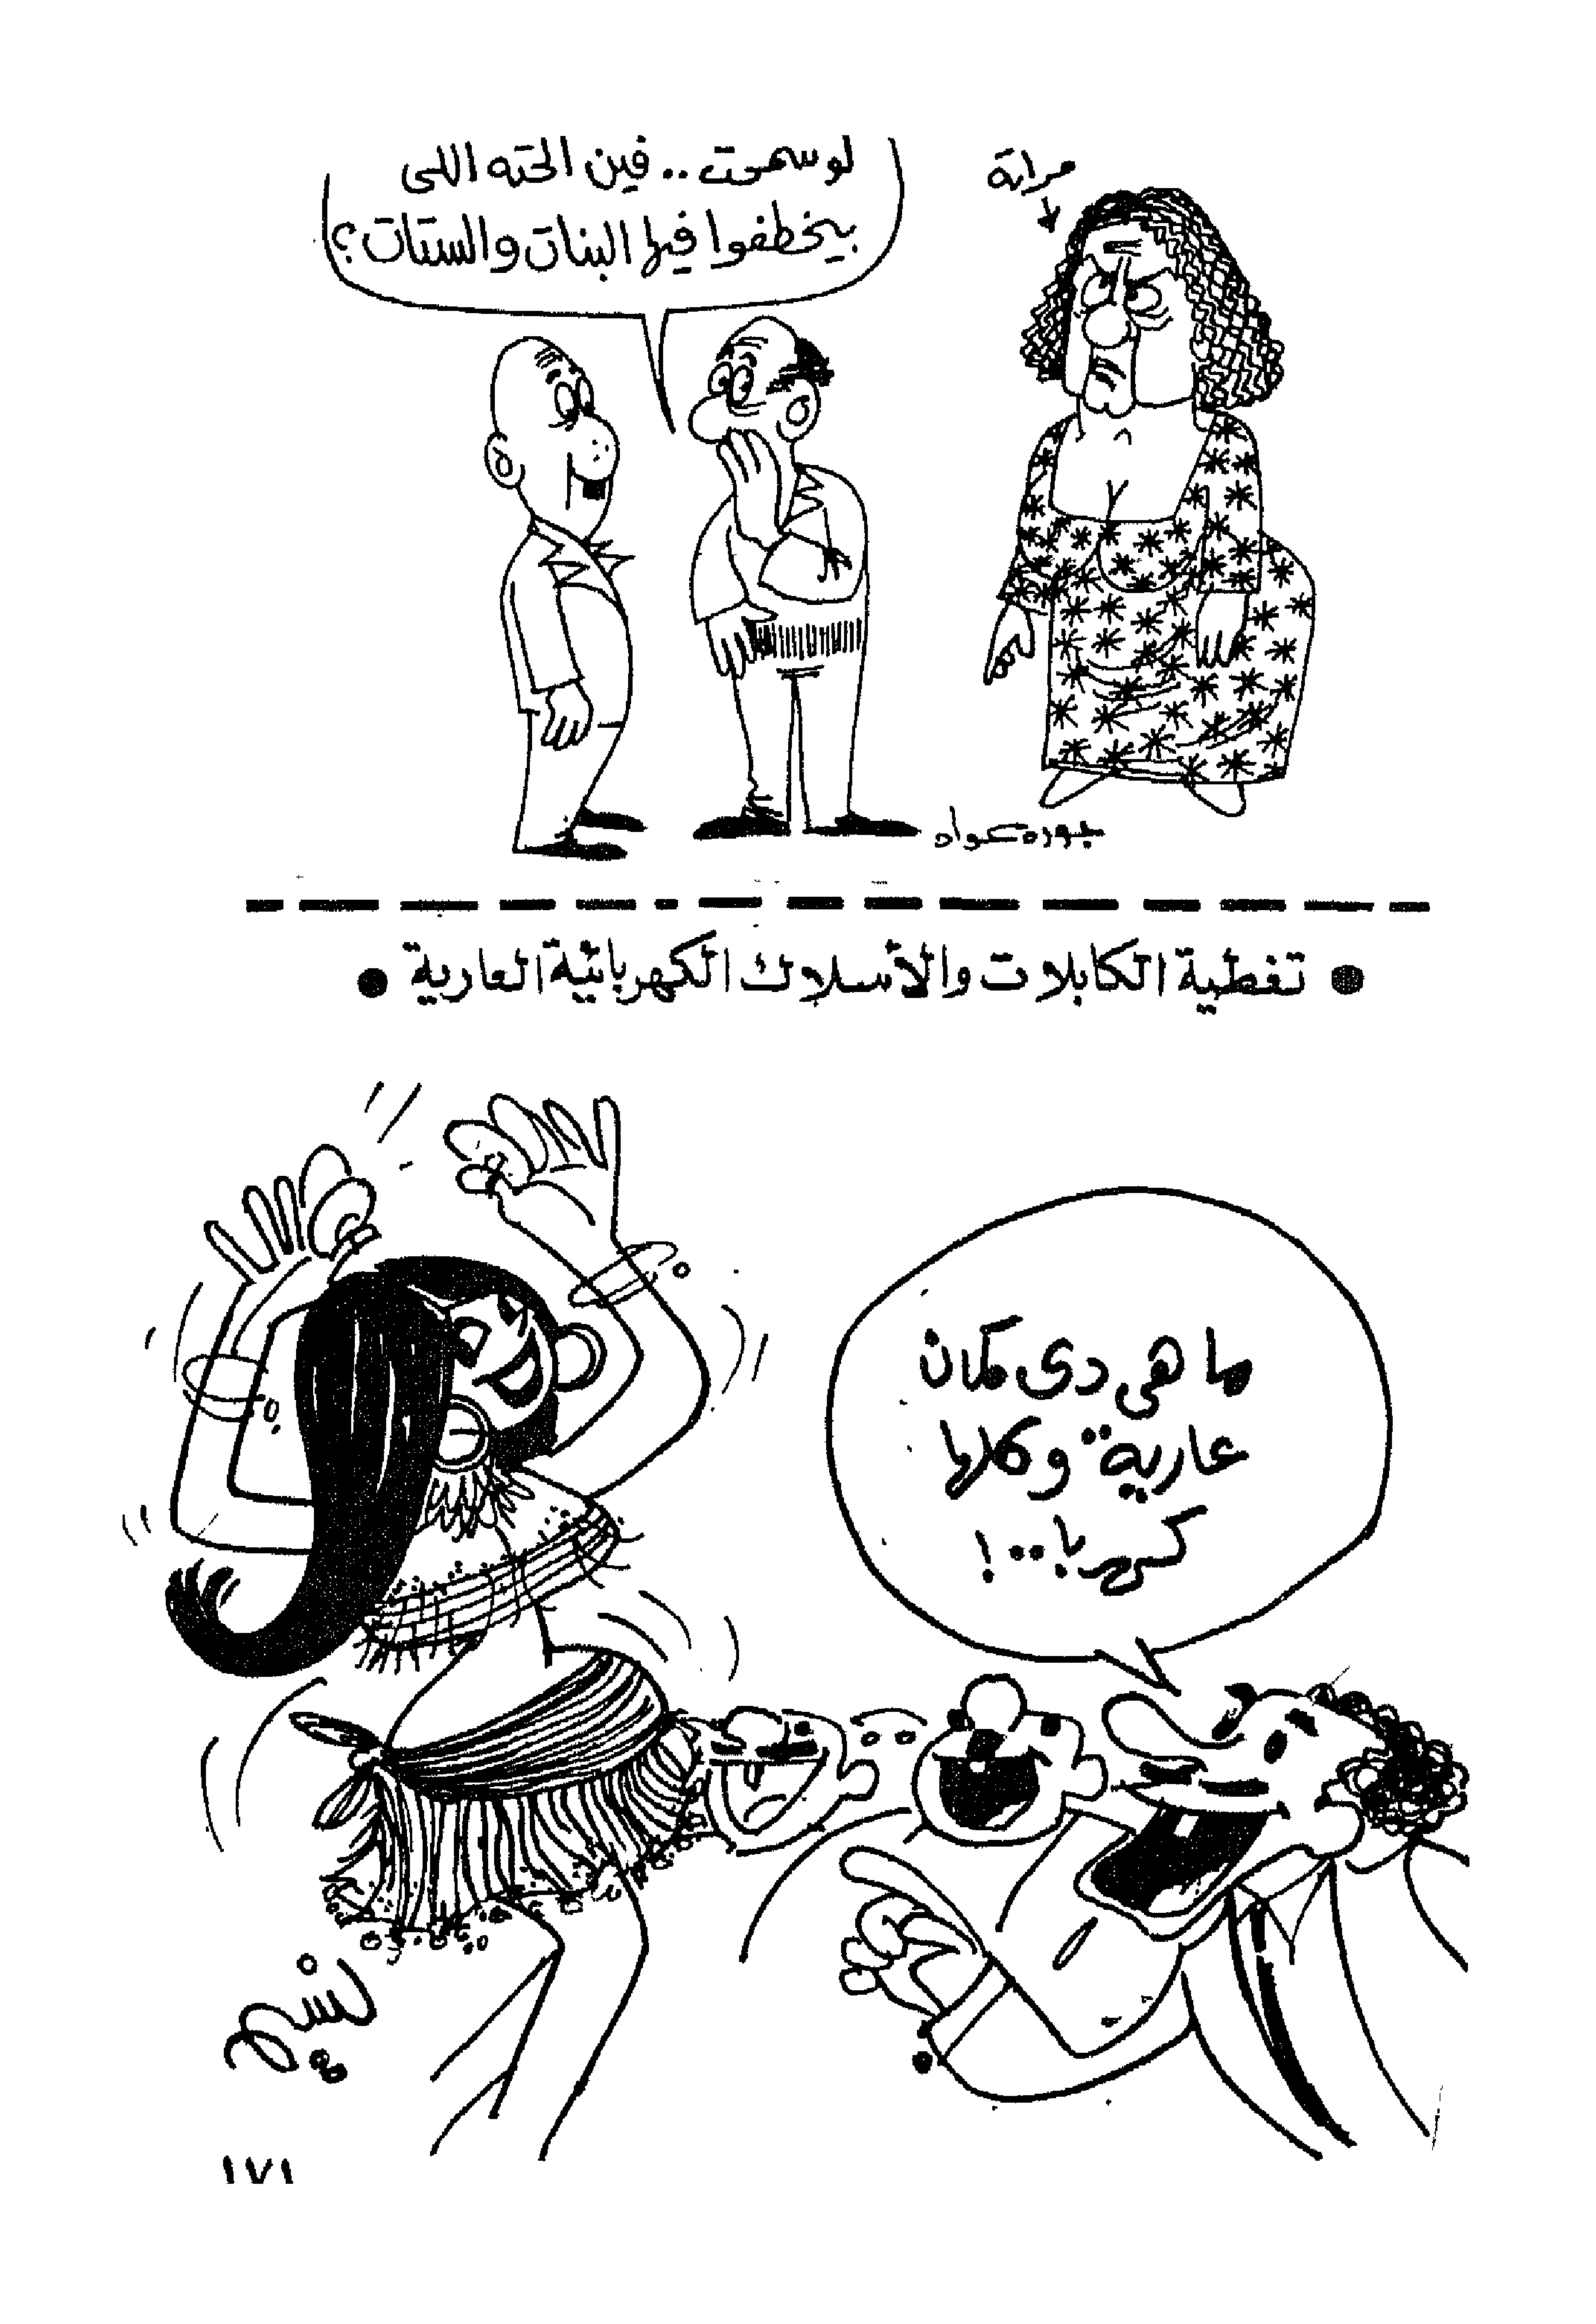 لو سمحت .. فين الحته اللى
بيخطفوا فيها البنات والستات ؟
مراته
جوده عواد
● تغطية الكابلات والأسلاك الكهربائية العارية ●
ما هى دى كمان
عارية .. وكلها
كهربا .. !
١٧١